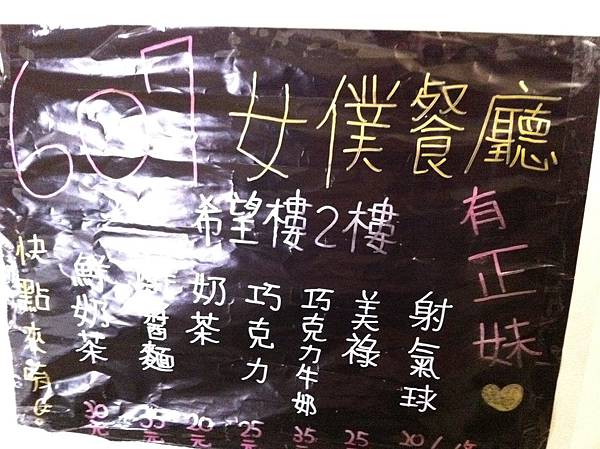 607 女僕餐廳
希望樓2樓
有正妹
射氣球 20/
美祿 25
巧克力牛奶 35元
巧克力 25元
奶茶 20元
醬麵 35元
鮮奶茶 30元
快點來唷